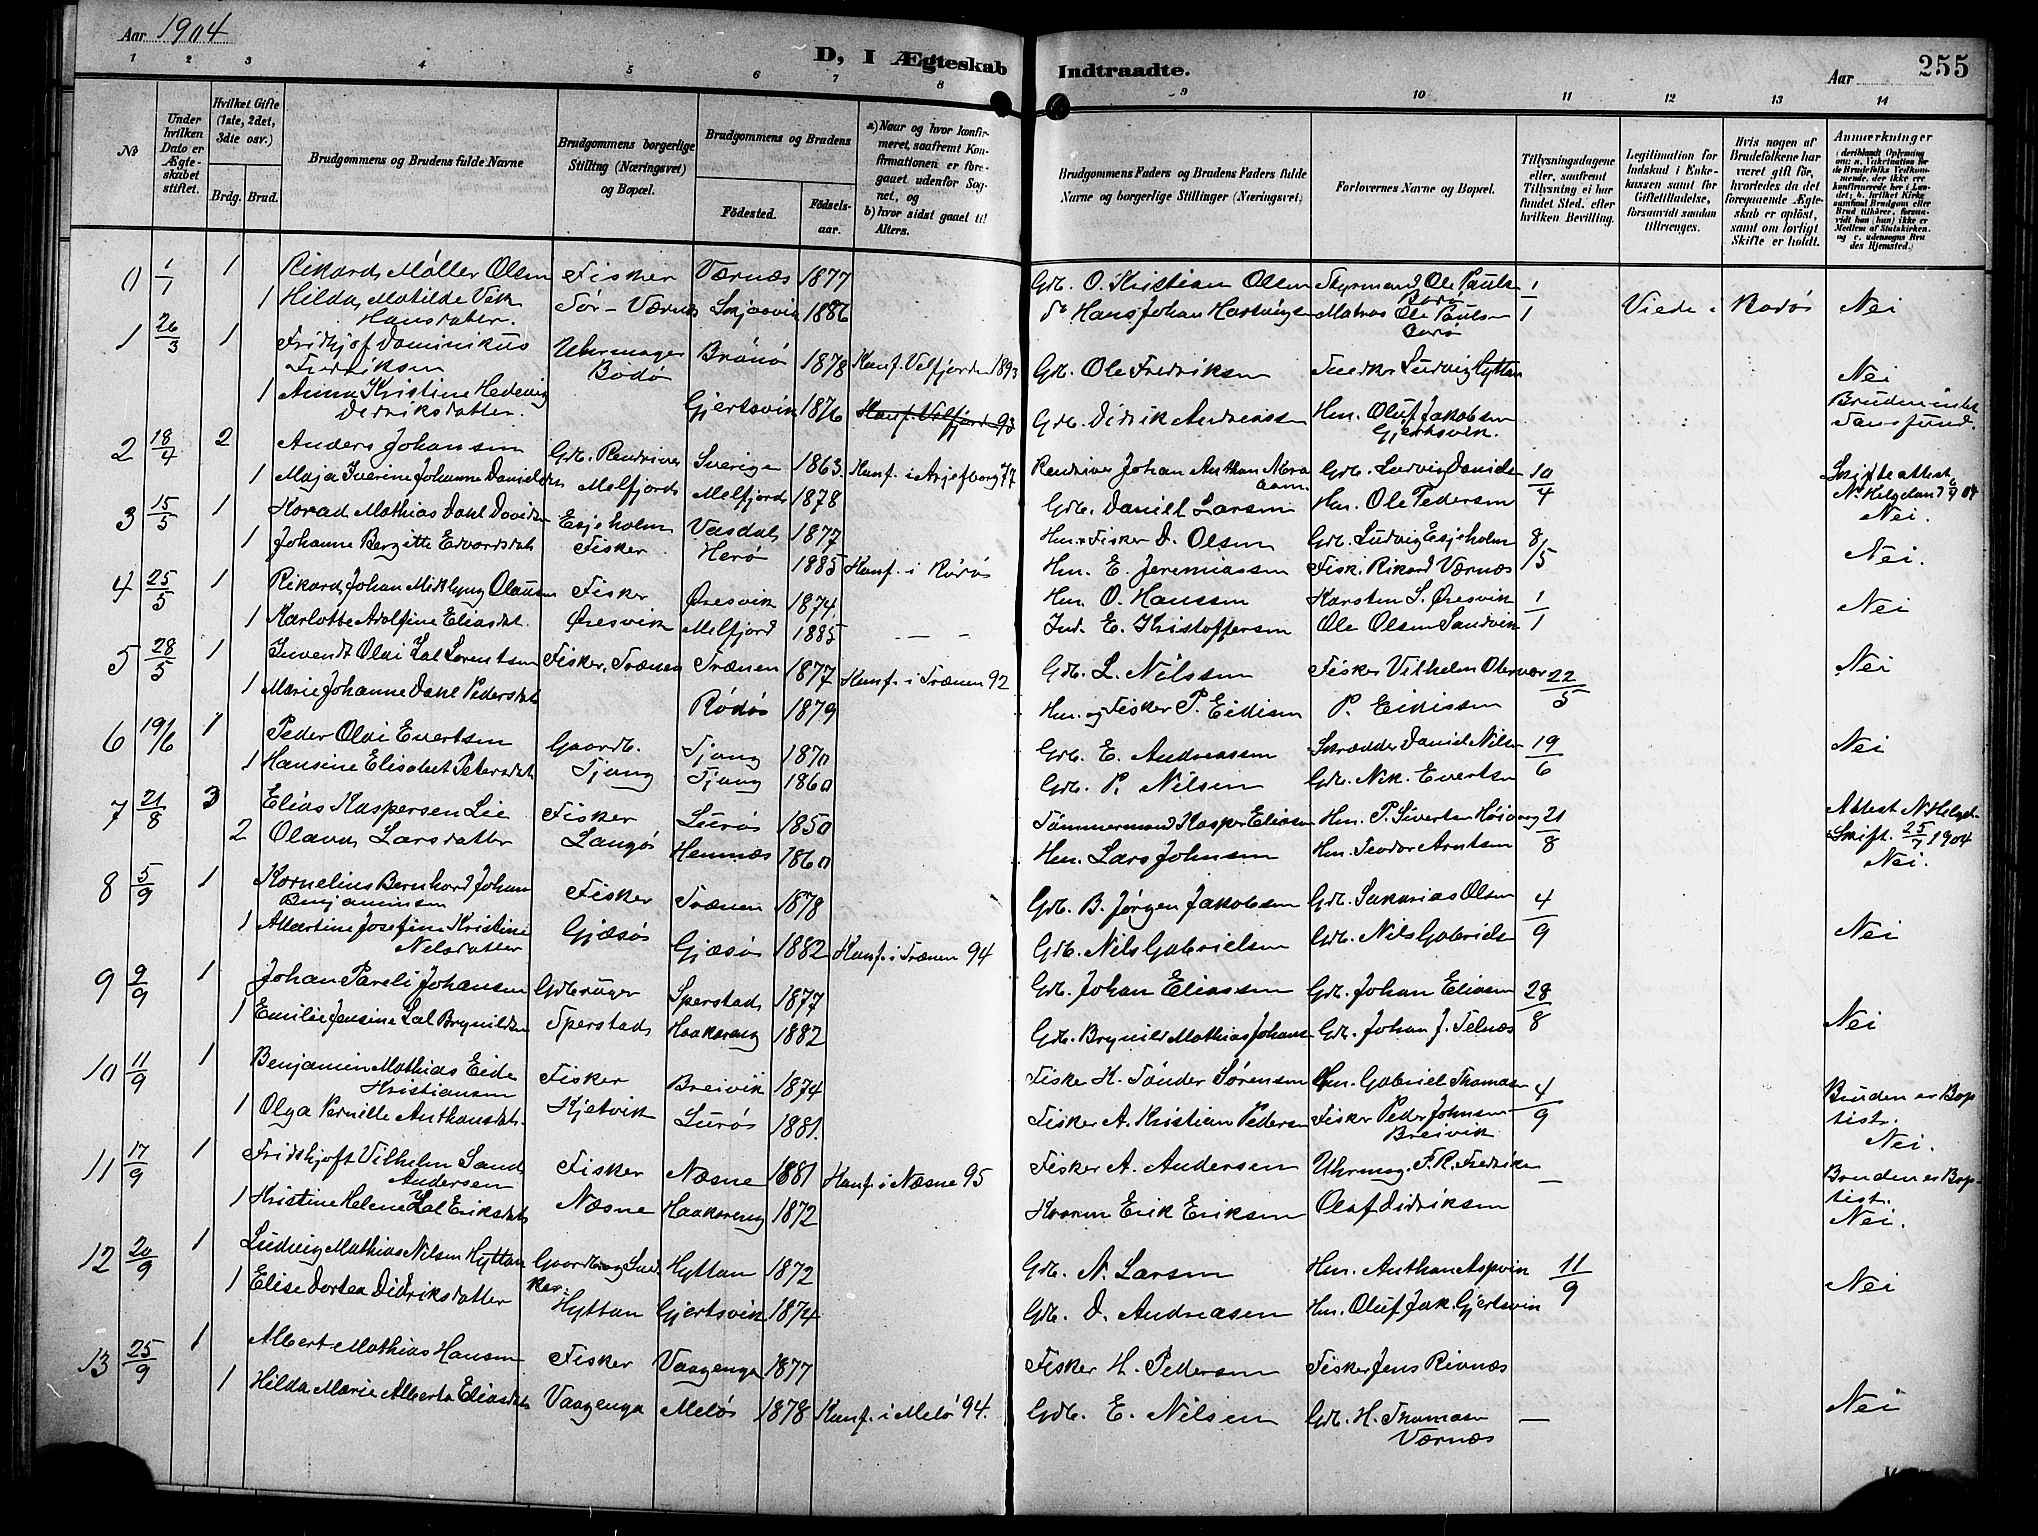 Aar 1904
D, I Ægteskab Indtraadte.
Aar
255
1 2 3 4 5 6 7 8 9 10 11 12 13 14
№
Under hvilken Dato er Ægteskabet stiftet.
Hvilket Gifte (1ste, 2det, 3die osv.)
Brdg. Brud.
Brudgommens og Brudens fulde Navne
Brudgommens borgerlige Stilling (Næringsvei) og Bopæl.
Brudgommens og Brudens
Fødested.
Fødselsaar.
a) Naar og hvor konfirmeret, saafremt Konfirmationen er foregaaet udenfor Sognet, og
b) hvor sidst gaaet til Alters.
Brudgommens Faders og Brudens Faders fulde Navne og borgerlige Stillinger (Næringsvei)
Forlovernes Navne og Bopæl.
Tillysningsdagene eller, saafremt Tillysning ei har fundet Sted, efter hvilken Bevilling.
Legitimation for Indskud i Enkekassen samt for Giftetilladelse, forsaavidt saadan tiltrænges.
Hvis nogen af Brudefolkene har været gift før, hvorledes da det foregaaende Ægteskab er opløst, samt om lovligt Skifte er holdt.
Anmærkninger
0 1/1 1 Rikard Møller Olsen Fisker Værnæs 1877 Gdb. O. Kristian Olsen Styrmand Ole Pauls. Bodø 1/1
1 Hilda Matilde Vek Hansdatter. Sør-Værnæs Skjærvik 1886 do Hans Johan Hartvigsen Matros Ole Paulsen Bodø Viede i Bodø Nei
1 26/3 1 Fridhjof Dominikus Fredriksen Uhrmager Bodø Brønø 1878 Konf. Velfjorden 1893 Gdb. Ole Fredriksen Snedker Ludvig Hyttan Nei
1 Anna Kristine Hedevig Didriksdatter. Gjertsvik 1876 Konf. Velfjord 93 Gdb. Didrik Andreassen Hm. Oluf Jakobsen Gjertsvik.
2 18/4 2 Anders Johansen Gdb. Rendriver Sverige 1863. Konf. i Arjeflorg 77 Rendriver Johan Anthon Gdb. Ludvig Danielsen 10/4
1 Maja Iverine Johanne Danielsdtr. Melfjord Melfjord 1878 Gdb. Daniel Larsen Hm. Ole Pedersen Nei.
3 15/5 1 Konrad Mathias Dahl Davidsen Esjeholm Vasdal 1877 Hm. Fisker D. Olsen Gdb. Ludvig Esjeholm 8/5
1 Johanne Bergitte Edvardsdat. Fisker. Herø 1885 Konf. i Rødø Hm. E. Jeremiassen Fisk. Rikard Værnæs Nei.
4 25/5 1 Rikard Johan Meklyng Olausen Fisker Øresvik 1874 Hm. O. Hanssen Karsten S. Øresvik 1/1
1 Karlotte Adolfine Eliasdat. Øresvik Melfjord 1885 — — — Ind. E. Kristoffersen Ole Olsen Sandvik Nei
5 28/5 1 Invendt Olai Zal Lorentsen Fisker, Trænen Trænen 1877 Konf. i Trænen 92 Gdb. L. Nilssen Fisker Vilhelm Olsen 22/5 Nei
1 Marie Johanne Dahl Pedersdat. Rødø 1879 Hm. og Fisker P. Eidisen P. Eidissen
6 19/6 1 Peder Olai Evertsen Gaardb. Tjong 1870 Gdb. E. Andreassen Skrædder Daniel Nilsen 19/6 Nei
1 Hansine Elisabet Petersdat. Tjong Tjong 1860 Gdb. P. Nilsen Gdb. Nik. Evertsen
7 21/8 3 Elias Kaspersen Lie Fisker Lurø 1850 Tømmermand Kasper Eliassen Hm. P. Sivertsen 21/8
2 Olava Larsdatter Langø Hemnæs 1860 Hm. Lars Johnsen Hm. Teodor Arntsen Attest N. Helgel. Skift. 25/7 1904 Nei.
8 5/9 1 Kornelius Bernhard Johan Benjaminsen Fisker Trænen 1878 Gdb. B. Jørgen Jakobsen Gdb. Sakarias Olsen 4/9
1 Albertine Josefine Kristine Nilsdatter Gjæsø Gjæsø 1882 Konf. i Trænen 94 Gdb. Nils Gabrielsen Gdb. Nils Gabrielsen Nei
9 9/9 1 Johan Pareli Johansen Gdbruger Sperstad 1877 Gdb. Johan Eliassen Gdb. Johan Eliasen 28/8
1 Emilie Jensine Zal Brynildsen Sperstad Haakøreng 1882 Gdb. Brynild Mathias Johans. Gdb. Johan J. Telnæs Nei
10 11/9 1 Benjamin Mathias Eide Kristiansen Fisker Breivik 1874 Fisker K. Tønder Sørensen Hm. Gabriel Thomasen 4/9
1 Olga Pernille Anthonsdat. Kjetvik Lurø 1881. Fisker A. Kristian Pedersen Fisker Peder Johnsen Breivik Bruden er Baptist. Nei.
11 17/9 1 Fridthjoft Vilhelm Sand Andersen Fisker Næsne 1881 Konf. i Næsne 95 Fisker A. Andersen Uhrmag. F. R. Fredriksen —
1 Kristine Helene Zal Eriksdat. Næsne Haakøreng 1872 Erik Eriksen Olaf Didriksen Bruden er Baptist. Nei.
12 20/9 1 Ludvig Mathias Nilsen Hyttan Gaardb. og Snedker Hyttan 1872 Gdb. N. Larsen Hm. Anthon Aspvik 11/9
1 Elise Dortea Didriksdatter Hyttan Gjertsvik 1874 Gdb. D. Andreasen Hm. Oluf Jak. Gjertsvik Nei
13 25/9 1 Albert Mathias Hansen Fisker Vaagenga 1877 Fisker H. Pedersen Fisker Jens Rivnæs
1 Hilda Marie Alberta Eliasdat. Vaagenga Melø 1878 Konf. i Melø 94. Gdb. E. Nilsen Gdb. H. Thomasen Værnæs — Nei